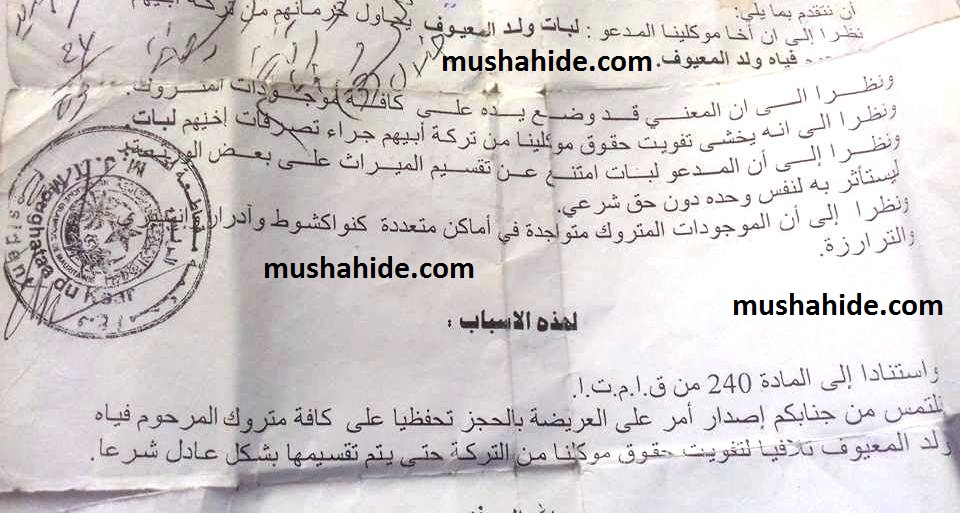 ان نتقدم بما يلي:
نظرا إلى ان أخا موكلينا المدعو : لبات ولد المعيوف يحاول حرمانهم من تركة أبيهم
فياه ولد المعيوف.
mushahide.com
ونظرا الى ان المعني قد وضع يده على كافة موجودات المتروك.
ونظرا الى انه يخشى تفويت حقوق موكلينا من تركة أبيهم جراء تصرفات إخيهم لبات
ونظرا إلى أن المدعو لبات امتنع عن تقسيم الميراث على بعض
ليستأثر به لنفس وحده دون حق شرعي.
ونظرا إلى أن الموجودات المتروك متواجدة في أماكن متعددة كنواكشوط وأدرار
والترارزة.
Moughataa du Ksar
mushahide.com
mushahide.com
لهذه الاسباب :
واستنادا إلى المادة 240 من ق.ا.م.ت.ا.
نلتمس من جنابكم إصدار أمر على العريضة بالحجز تحفظيا على كافة متروك المرحوم فياه
ولد المعيوف تلافيا لتفويت حقوق موكلنا من التركة حتى يتم تقسيمها بشكل عادل شرعا.